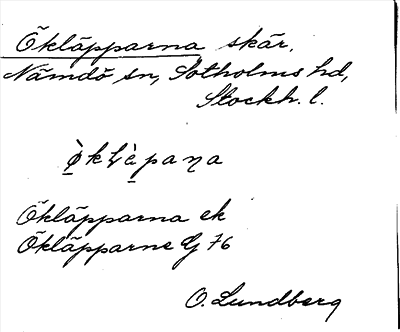 Ökläpparna skär,
Nämdö sn, Sotholms hd,
Stockh. l.
Ökläpparna ek
Ökläpparne G 76
O. Lundberg